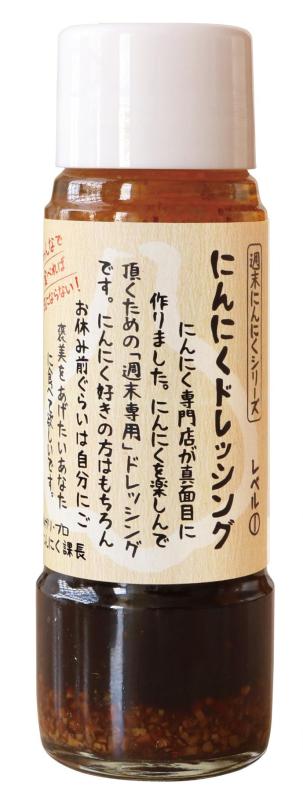 週末にんにくシリーズ
レベル①
にんにくドレッシング
にんにく専門店が真面目に
作りました。にんにくを楽しんで
頂くための「週末専用」ドレッシング
です。にんにく好きの方はもちろん
お休み前ぐらいは自分にご
褒美をあげたいあなた
に食べて欲しいです。
課長
なで
べれば
ならない！